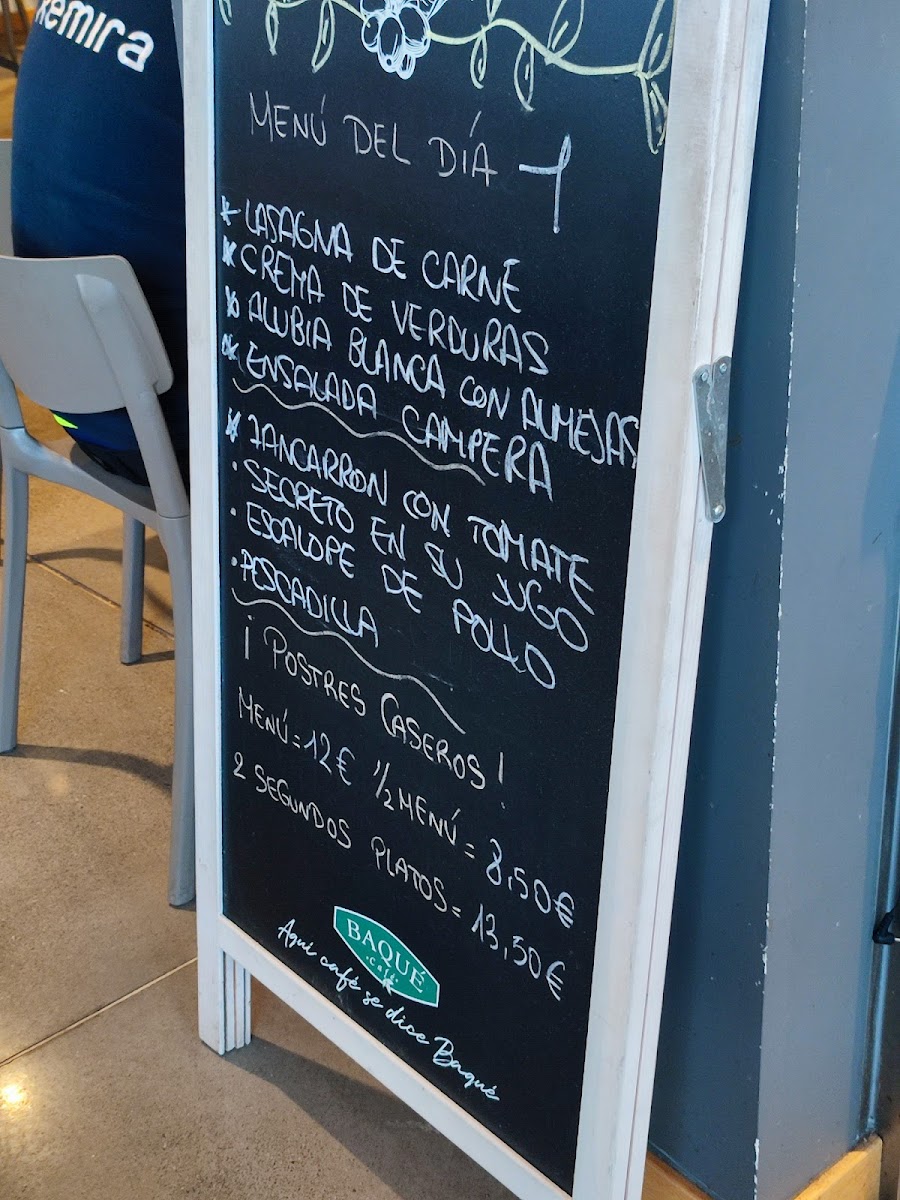 Remira
MENÚ DEL DÍA -
* LASAGNA DE CARNE
* CREMA DE VERDURAS
* ALUBIA BLANCA CON ALMEJAS
* ENSALADA CAMPERA
* ZANCARRON CON TOMATE
· SECRETO EN SU JUGO
· ESCALOPE DE POLLO
· PESCADILLA
¡POSTRES CASEROS!
MENÚ = 12€ 1/2 MENÚ = 8,50€
2 SEGUNDOS PLATOS = 13,50€
BAQUÉ
·Café·
Aquí café se dice Baqué